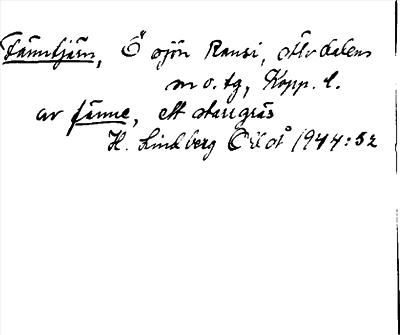 Fänntjärn, Ö sjön Ransi, Älvdalens
m o. tg, Kopp. l.
av fänne, ett starrgräs
H. Lindberg 1944:52